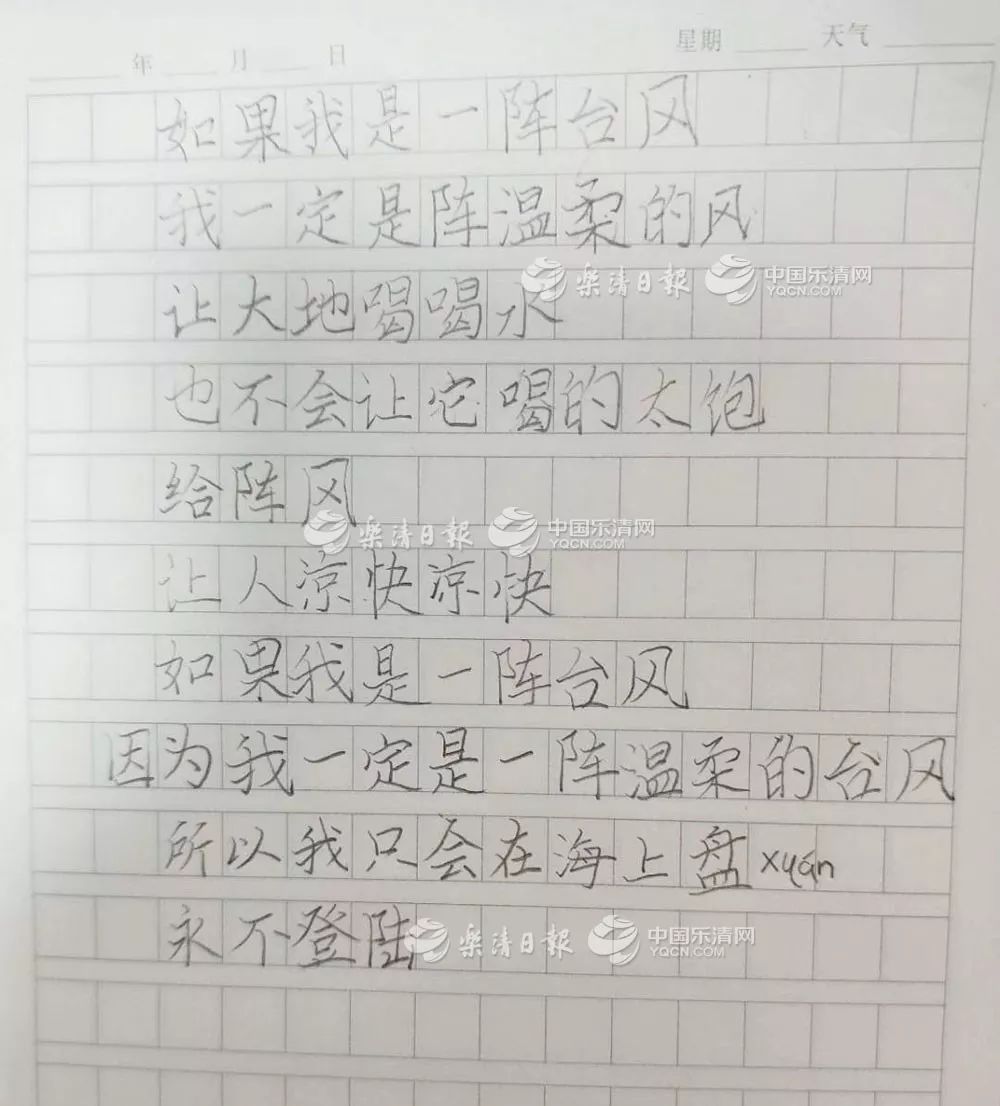 年 月 日 星期 天气
如果我是一阵台风
我一定是阵温柔的风
樂清日報 中国乐清网 YQCN.COM
让大地喝喝水
也不会让它喝的太饱
给阵风
樂清日報 中国乐清网 YQCN.COM
让人凉快凉快
如果我是一阵台风
因为我一定是一阵温柔的台风
所以我只会在海上盘xuán
永不登陆
樂清日報 中国乐清网 YQCN.COM